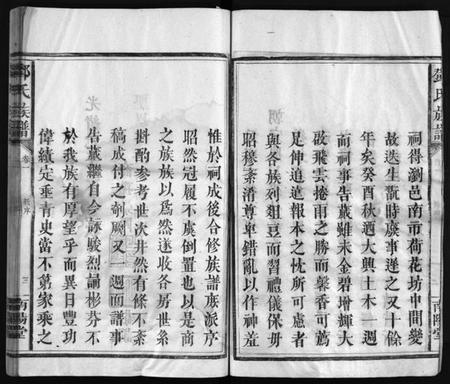 祠得瀏邑南市荷花坊中間變
故迭生翫時廢事遂之又十餘
年矣癸酉秋迺大興土木一週
而祠事告蕆雖未金碧增輝大
啟飛雲捲雨之勝而馨香可薦
足伸追遠報本之忱所可慮者
與各族列俎豆而習禮儀保毋
昭穆紊淆尊卑錯亂以作神羞
鄧氏族譜
南陽堂
惟於祠成後合修族譜庶派序
昭然冠履不虞倒置也以是商
之族族以為然遂收各房世系
斟酌參考世次井然有條不紊
稿成付之剞劂又一週而譜事
告蕆繼自今詠駿烈誦彬芬不
於我族有厚望乎而異日豐功
偉績定垂青史當不第家乘之
鄧氏族譜
卷一
三
南陽堂